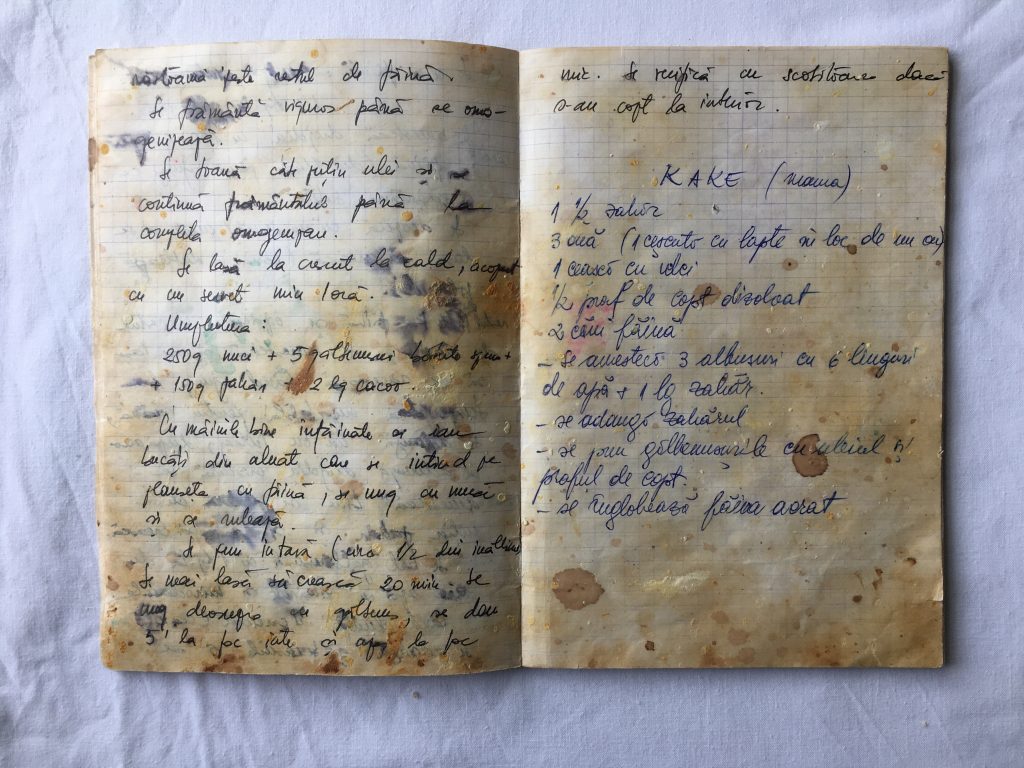 peste restul de făină.
Se frământă viguros până se omo-
genizează.
Se toarnă câte puțin ulei și se
continuă frământatul până la
completa omogenizare.
Se lasă la crescut la cald, acoperit
cu un servet min 1 oră.
Umplutura:
250g nuci + 5 gălbenușuri bătute spumă +
+ 150g zahăr + 2 lg cacao.
Cu mâinile bine înfăinate se iau
bucăți din aluat care se întind pe
planșeta cu făină, se ung cu nucă
și se rulează.
Se pun în tavă (circa 1/2 din înălțime)
Se mai lasă să crească 20 min. Se
ung deasupra cu gălbenuș, se dau
5' la foc iute și apoi la foc
mic. Se verifică cu scobitoarea dacă
s-au copt la interior.
KAKE (mama)
1 1/2 zahăr
3 ouă (1 ceșcuto cu lapte în loc de un ou)
1 ceașcă cu ulei
1/2 praf de copt dizolvat
2 căni făină
- Se amestecă 3 albușuri cu 6 linguri
de apă + 1 lg zahăr.
- se adaugă zahărul
- se pun gălbenușurile cu uleiul și
praful de copt.
- se înglobează făina aerat